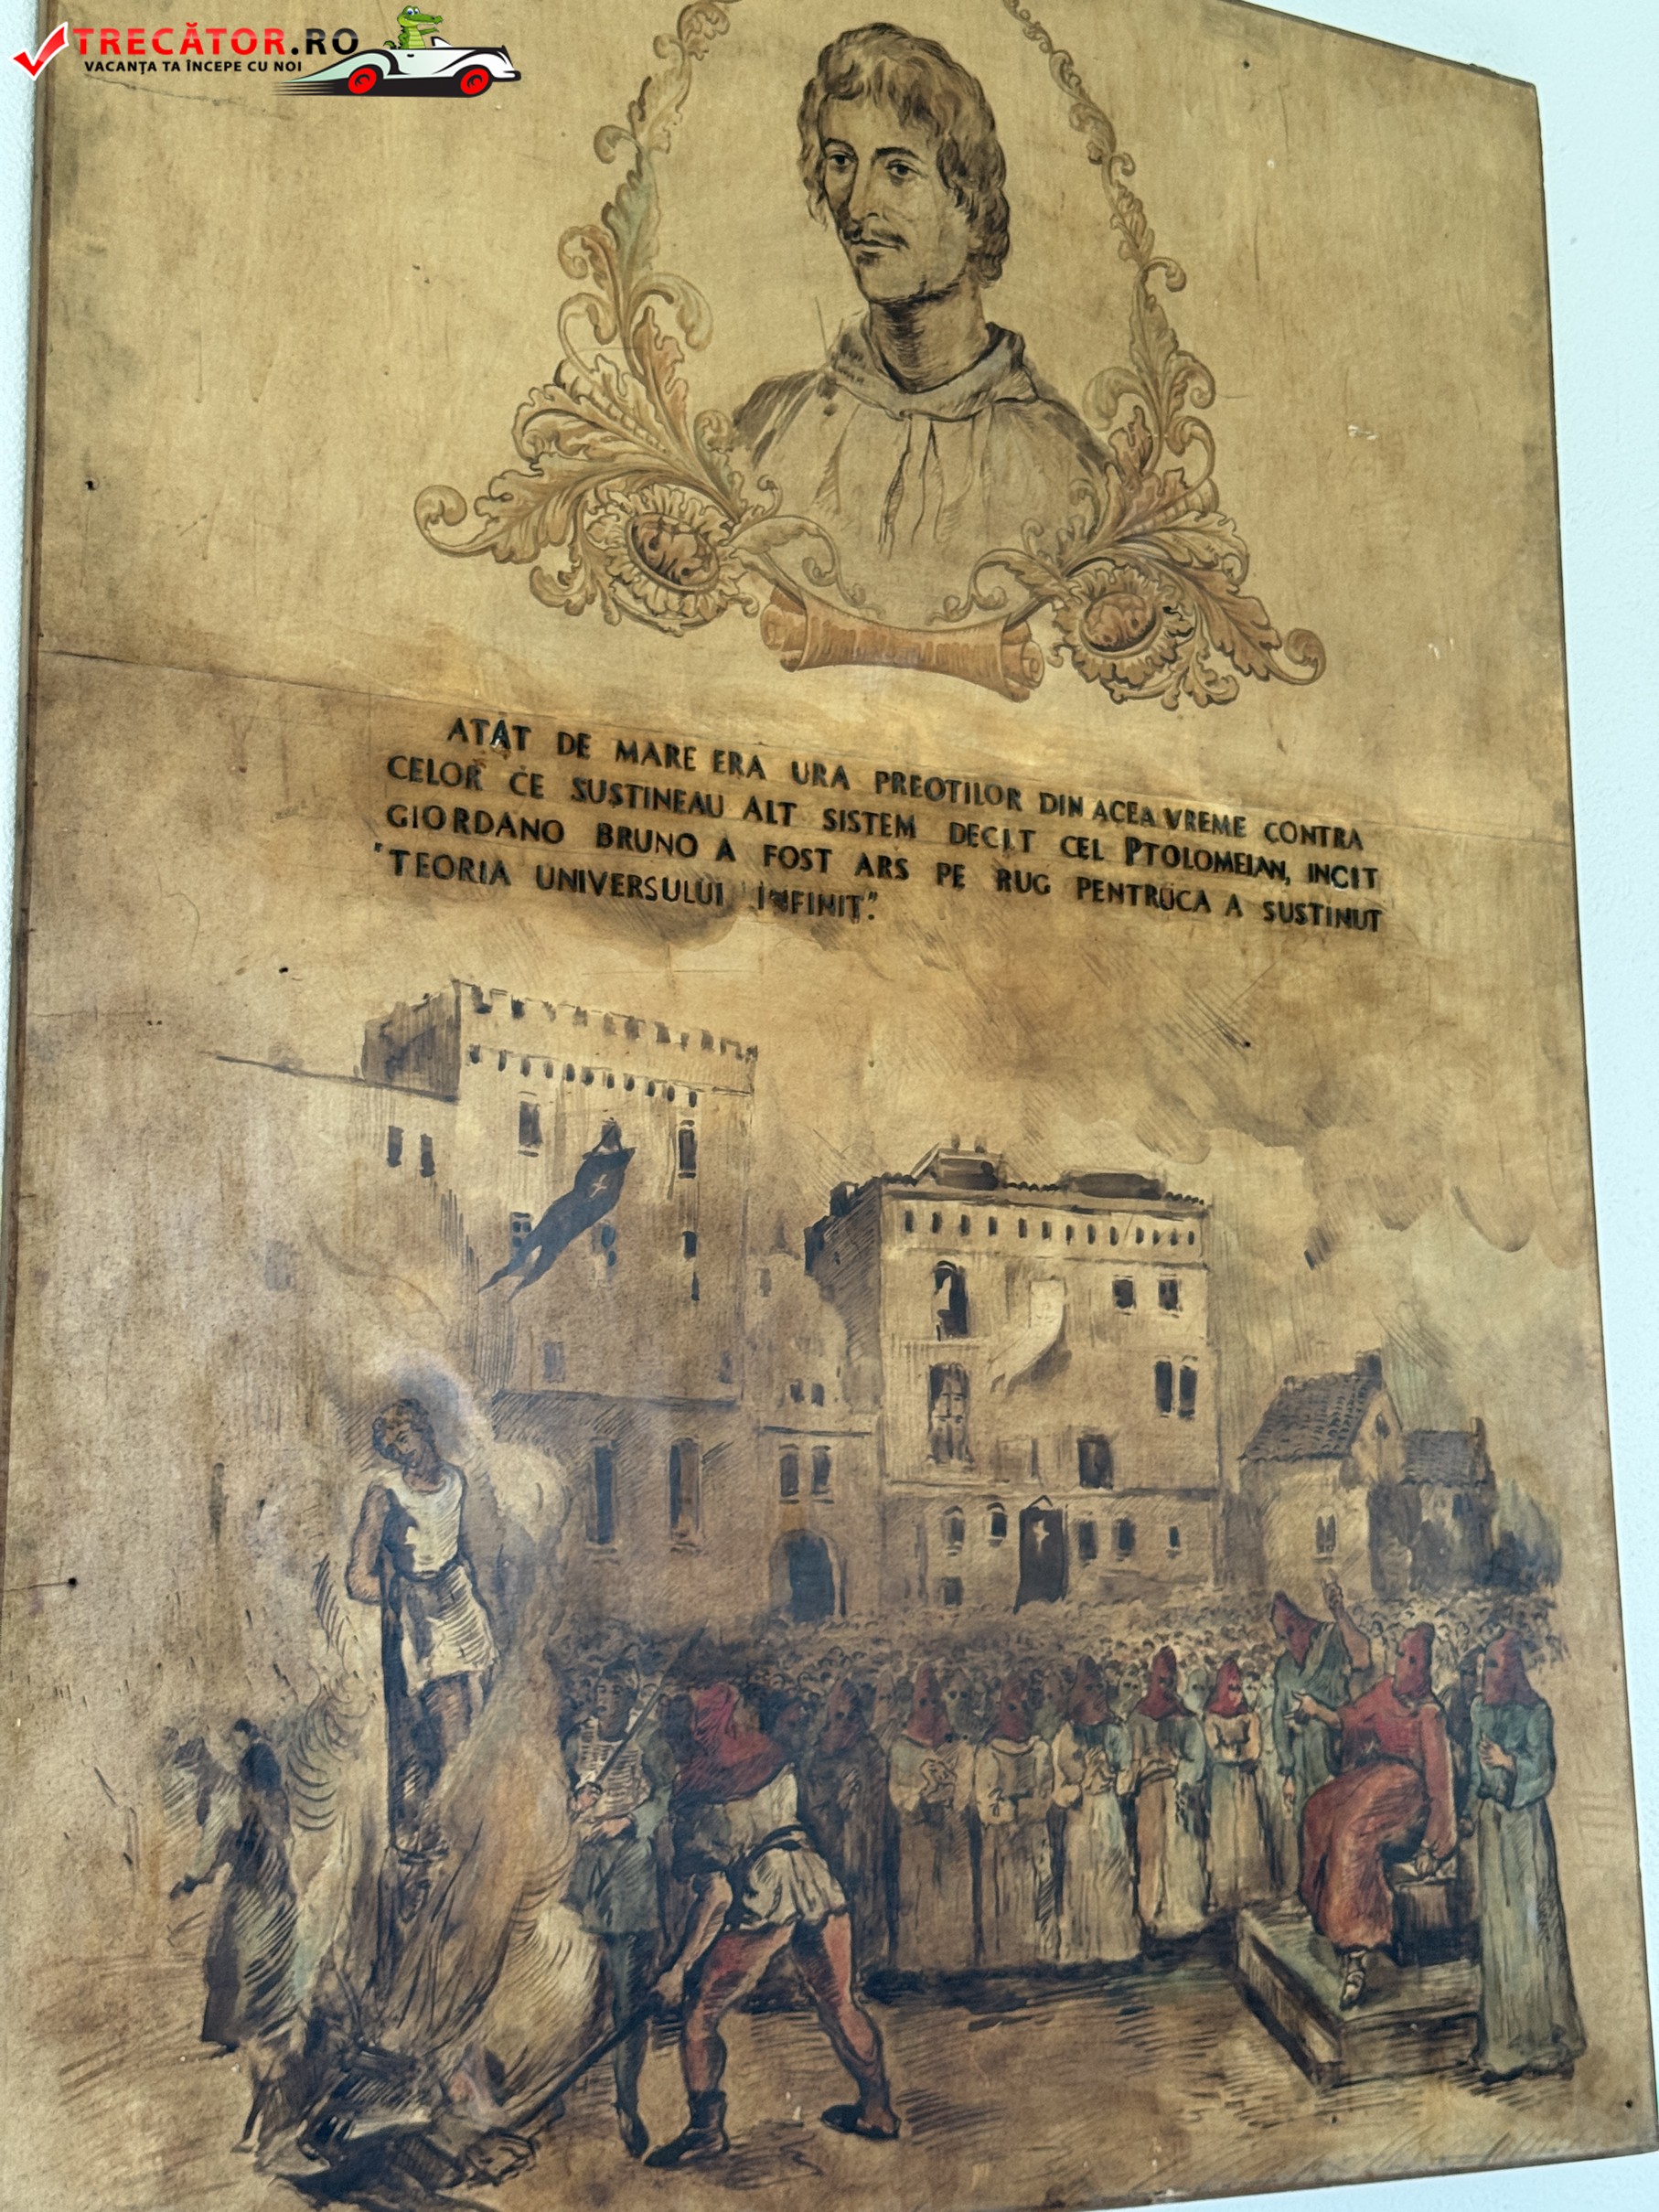 TRECĂTOR.RO
VACANȚA TA ÎNCEPE CU NOI
ATÂT DE MARE ERA URA PREOTILOR DIN ACEA VREME CONTRA
CELOR CE SUSTINEAU ALT SISTEM DECIT CEL PTOLOMEIAN, INCIT
GIORDANO BRUNO A FOST ARS PE RUG PENTRUCA A SUSTINUT
"TEORIA UNIVERSULUI INFINIT."